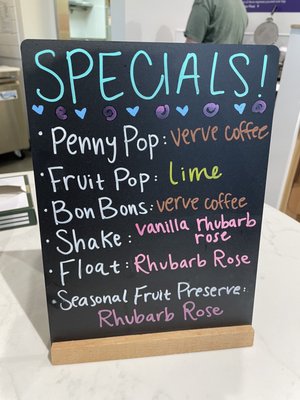 SPECIALS!
· Penny Pop: verve coffee
· Fruit Pop: lime
· Bon Bons: verve coffee
· Shake: vanilla rhubarb
rose
· Float: Rhubarb Rose
· Seasonal Fruit Preserve:
Rhubarb Rose